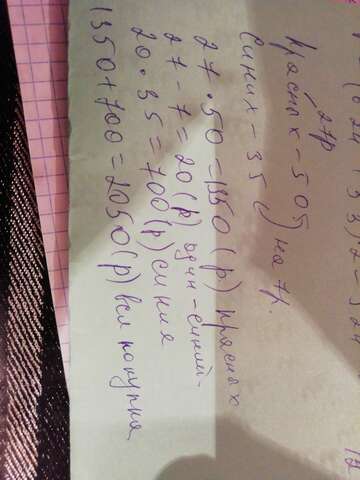 27р
красных - 50
синих - 35 ) на 7р.
27 · 50 = 1350 (р) красных
27 - 7 = 20 (р) один - синий
20 · 35 = 700 (р) синих
1350 + 700 = 2050 (р) вся покупка